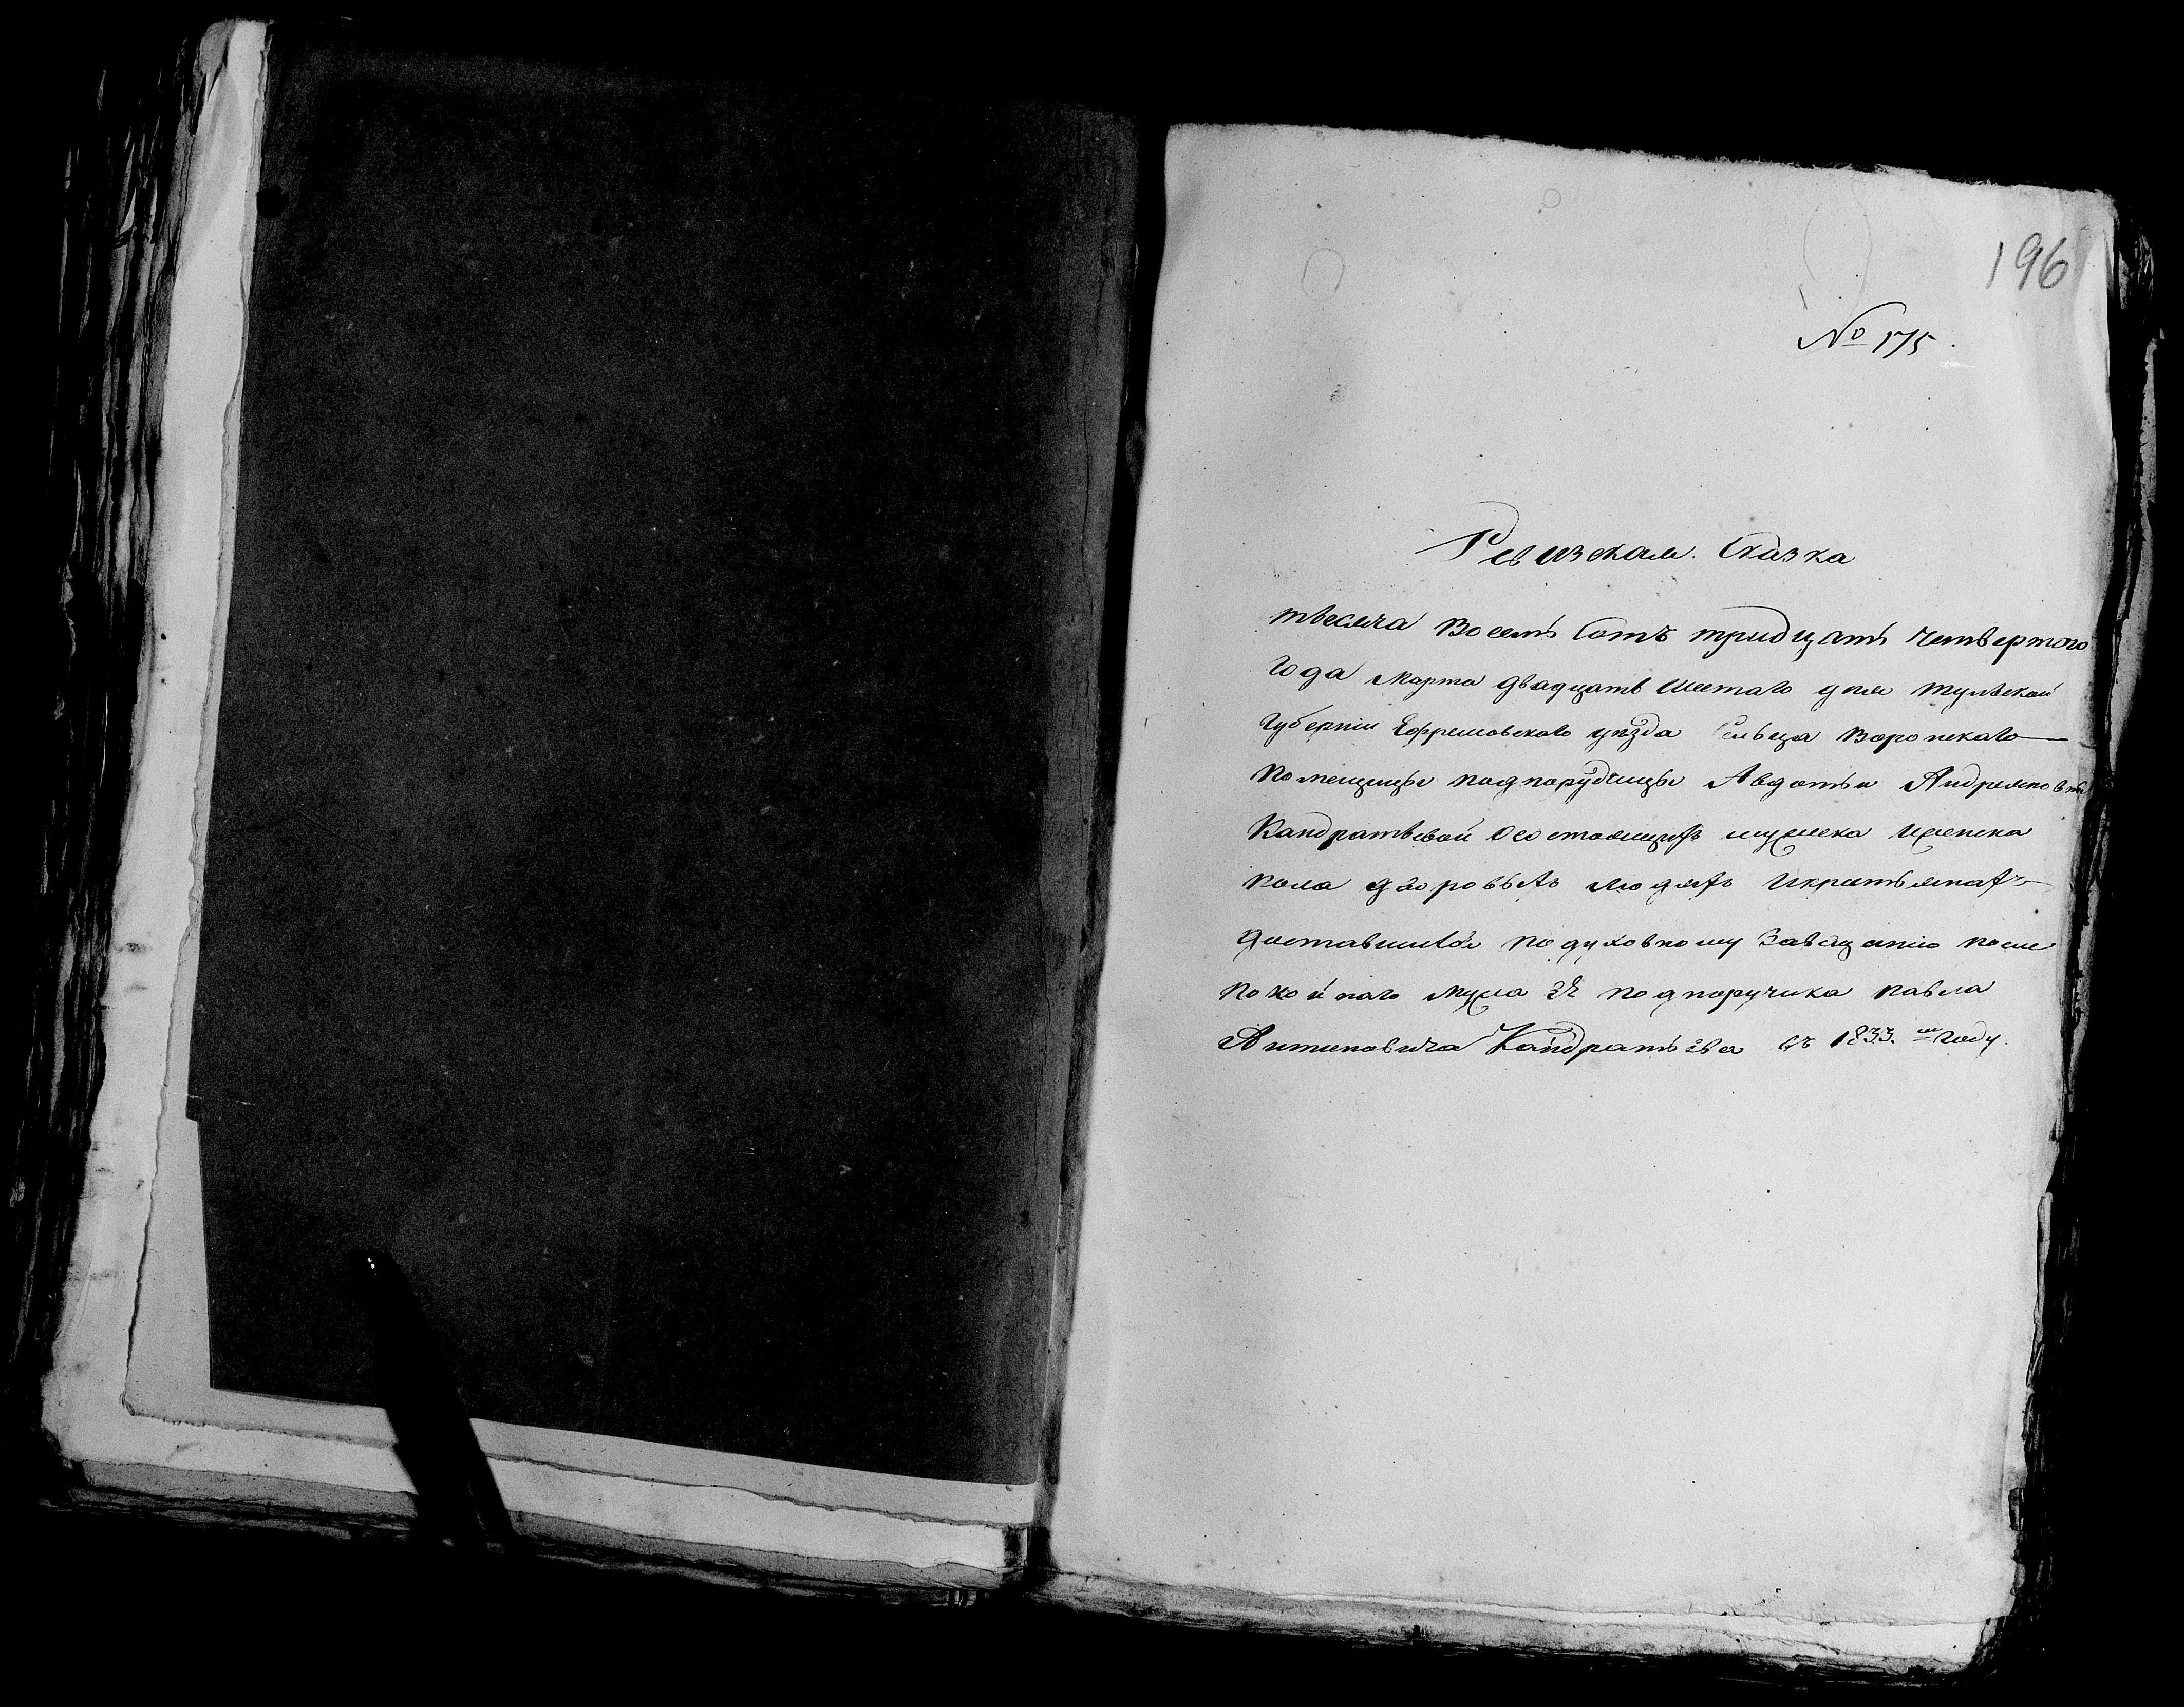 196
№ 175.
Ревизская. Сказка
тысяча Восемь Сотъ тридцать Четвертого
года марта двадцать шестаго дня тульской
губерніи Ефремовскаго уѣзда Сельца Воронскаго
помещицы подпоручицы Авдотьи Андреяновны
Кандратьевой Осостоящихъ мужеска иженска
пола дворовыхъ людяхъ икрестьянахъ
доставшихся подуховному Завещанію после
покойнаго мужа ЕЯ подпоручика павла
Антиповича Кандратьева въ 1833.м году.